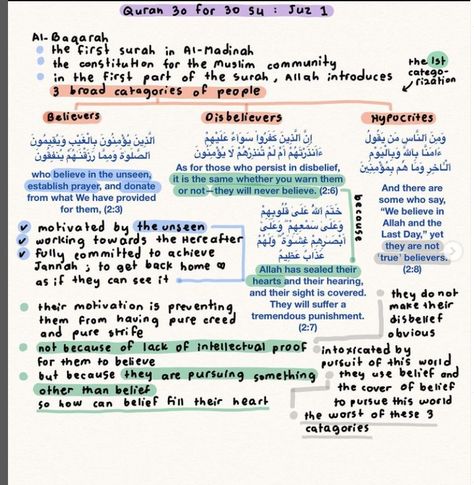 Quran 30 for 30 S4 : Juz 1
Al-Baqarah
the first surah in Al-Madinah
the constitution for the Muslim community
in the first part of the surah, Allah introduces
3 broad catagories of people
the 1st
catego-
rization
Believers
Disbelievers
Hypocrites
الَّذِينَ يُؤْمِنُونَ بِالْغَيْبِ وَيُقِيمُونَ
الصَّلَوٰةَ وَمِمَّا رَزَقْنَـٰهُمْ يُنفِقُونَ
who believe in the unseen,
establish prayer, and donate
from what We have provided
for them, (2:3)
إِنَّ الَّذِينَ كَفَرُوا سَوَاءٌ عَلَيْهِمْ
ءَأَنذَرْتَهُمْ أَمْ لَمْ تُنذِرْهُمْ لَا يُؤْمِنُونَ
As for those who persist in disbelief,
it is the same whether you warn them
or not—they will never believe. (2:6)
because
خَتَمَ اللَّهُ عَلَىٰ قُلُوبِهِمْ
وَعَلَىٰ سَمْعِهِمْ وَعَلَىٰ
أَبْصَـٰرِهِمْ غِشَـٰوَةٌ وَلَهُمْ
عَذَابٌ عَظِيمٌ
Allah has sealed their
hearts and their hearing,
and their sight is covered.
They will suffer a
tremendous punishment.
(2:7)
وَمِنَ النَّاسِ مَن يَقُولُ
ءَامَنَّا بِاللَّهِ وَبِالْيَوْمِ
الْـَٔاخِرِ وَمَا هُم بِمُؤْمِنِينَ
And there are
some who say,
“We believe in
Allah and the
Last Day,” yet
they are not
‘true’ believers.
(2:8)
motivated by the unseen
working towards the Hereafter
fully committed to achieve
Jannah ; to get back home ∞
as if they can see it
their motivation is preventing
them from having pure creed
and pure strife
not because of lack of intellectual proof
for them to believe
but because they are pursuing something
other than belief
so how can belief fill their heart
they do not
make their
disbelief
obvious
intoxicated by
pursuit of this world
they use belief and
the cover of belief
to pursue this world
the worst of these 3
catagories